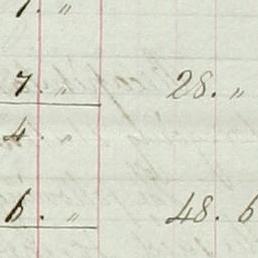 1. "
7 " 28. "
4. "
6. " 48. 6